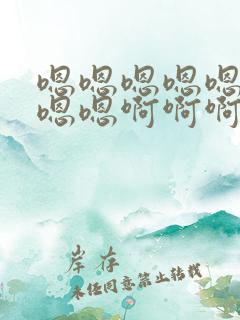 嗯嗯嗯嗯嗯
嗯嗯啊啊啊
岸存
未经同意禁止转载